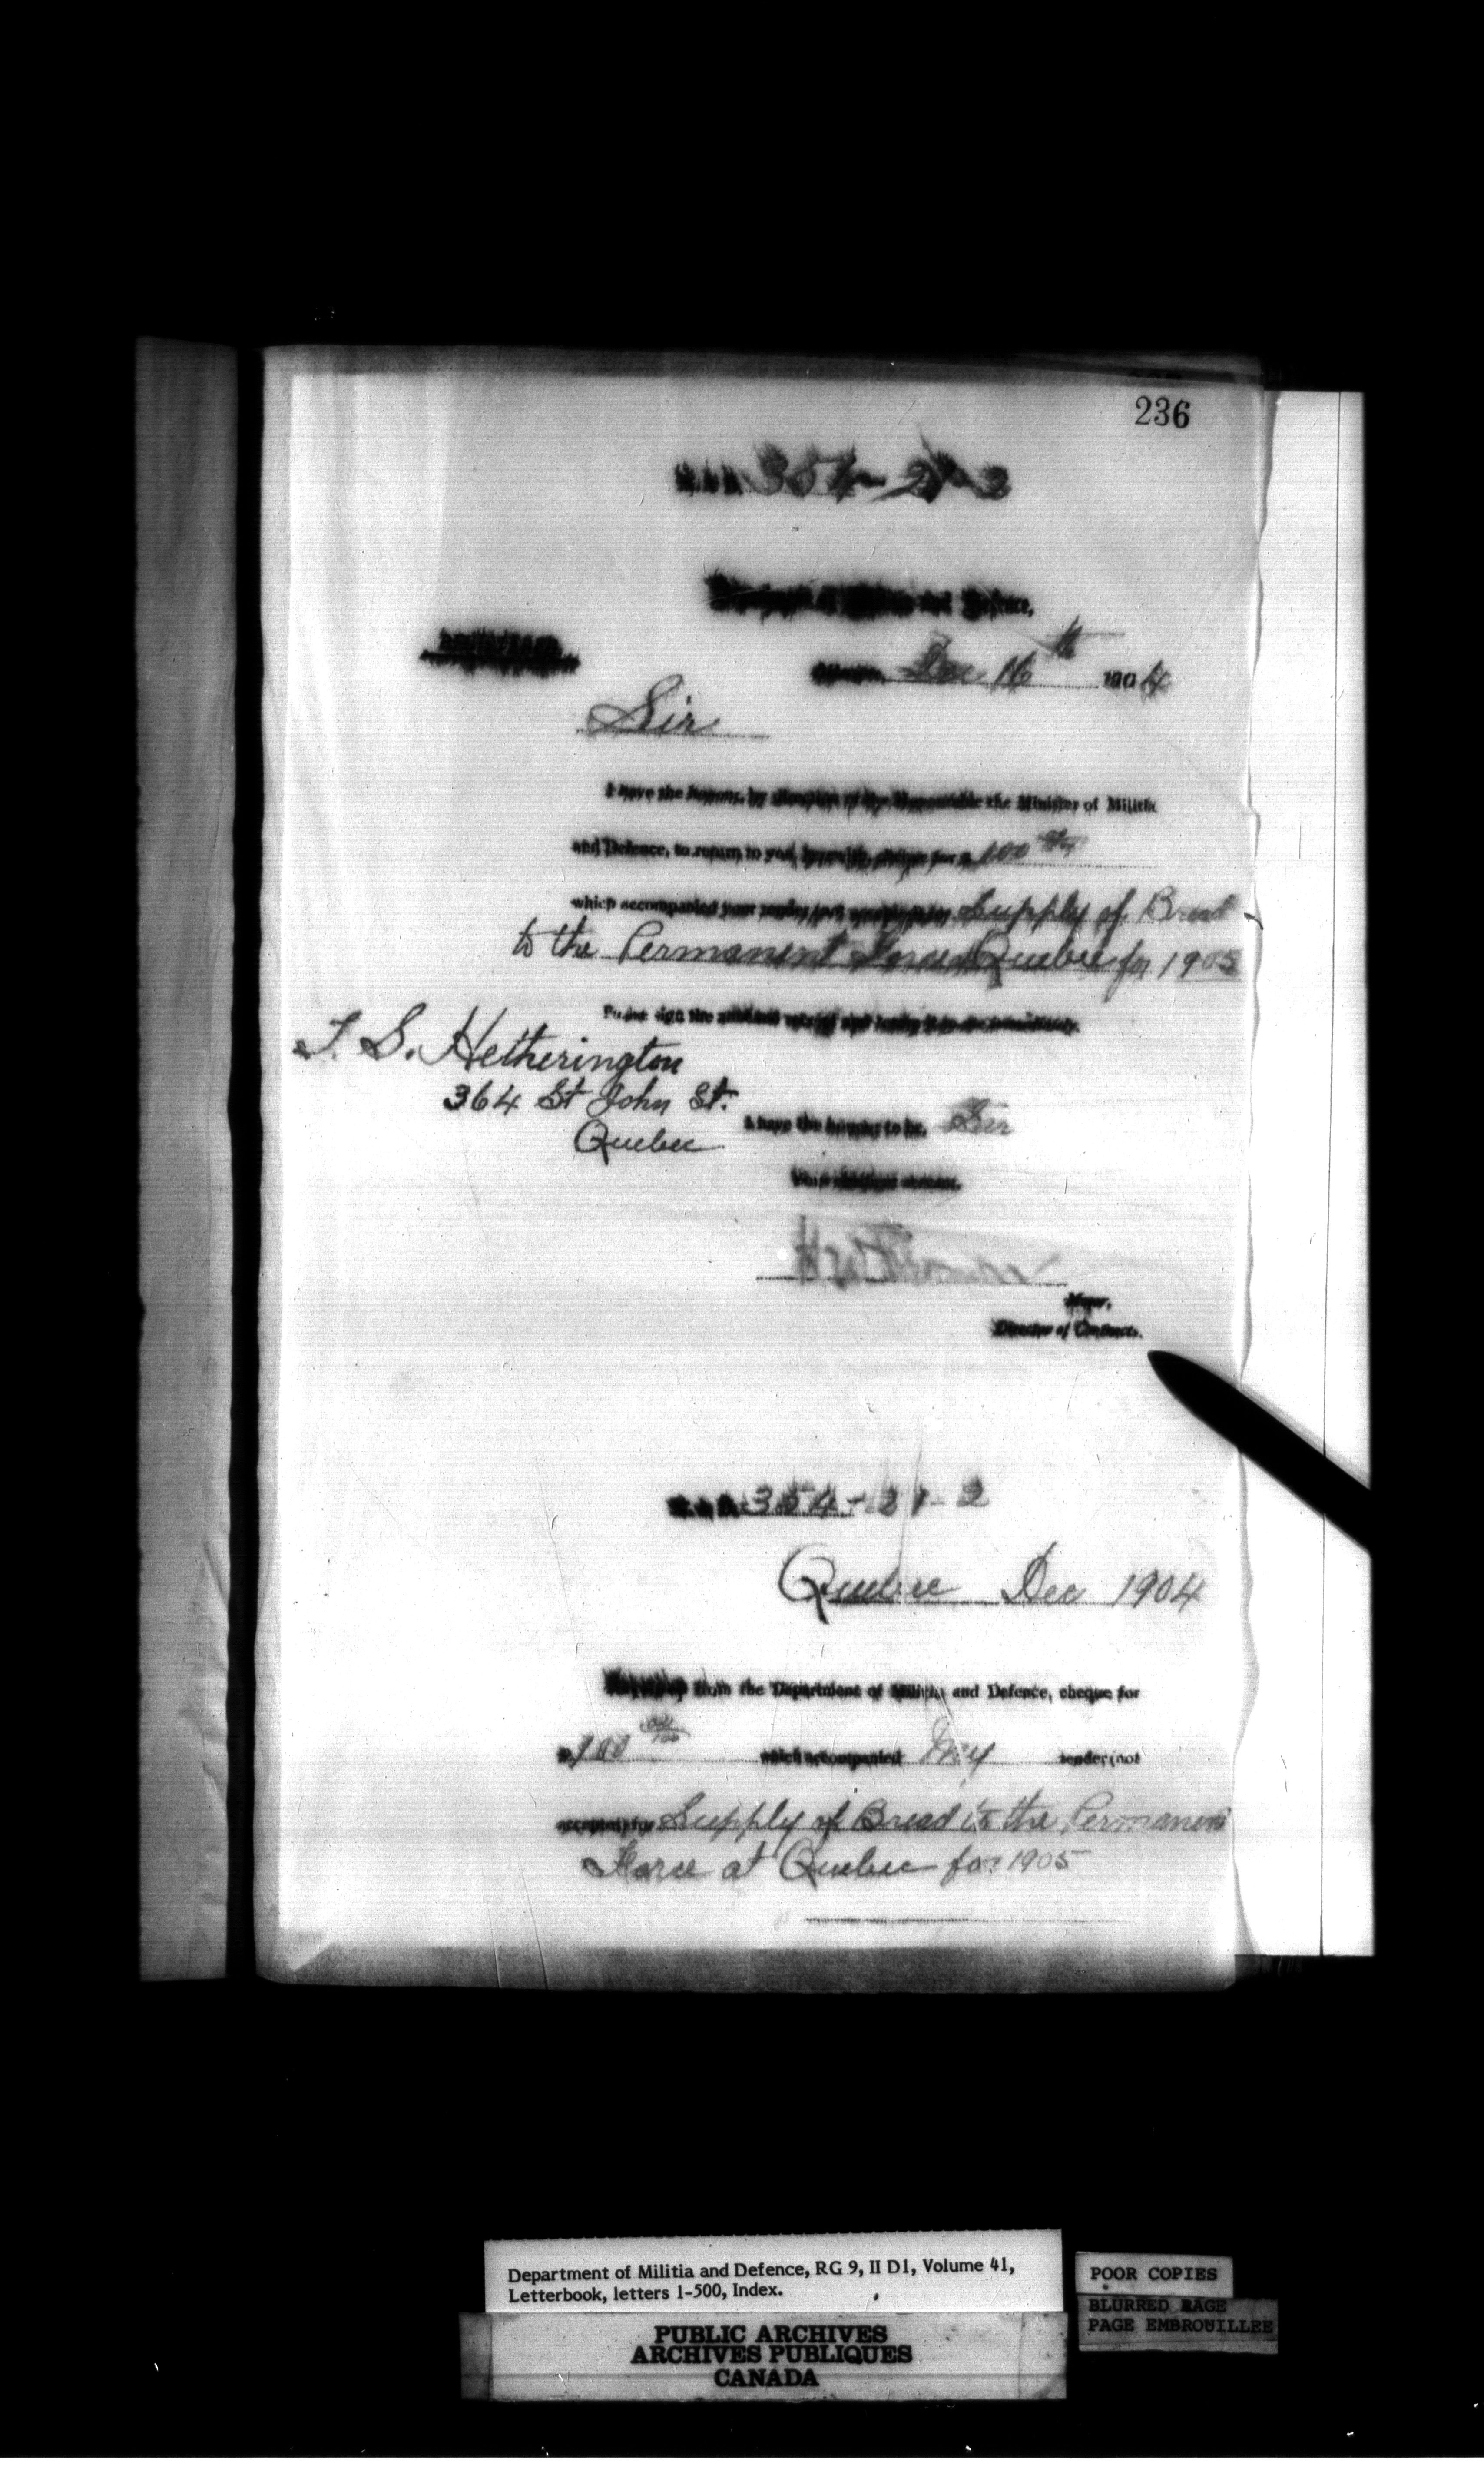 236
354-21-2
Department of Militia and Defence,
Dec 16th 1904
Sir
I have the honour, by direction of the Honourable the Minister of Militia
and Defence, to return to you, cheque for $ 100 00/100
which accompanied your tender (not accepted) for Supply of Bread
to the Permanent Force Quebec for 1905
Please sign the receipt and immediately.
T. S. Hetherington
364 St John St.
Quebec
I have the honour to be, Sir
Your obedient servant,
Director of Contracts.
354-21-2
Quebec Dec 1904
Received from the Department of Militia and Defence, cheque for
$100 00/100 which accompanied my tender (not
accepted) for Supply of Bread to the Permanent
Force at Quebec for 1905
Department of Militia and Defence, RG 9, II D1, Volume 41,
Letterbook, letters 1-500, Index.
PUBLIC ARCHIVES
ARCHIVES PUBLIQUES
CANADA
POOR COPIES
BLURRED PAGE
PAGE EMBROUILLEE